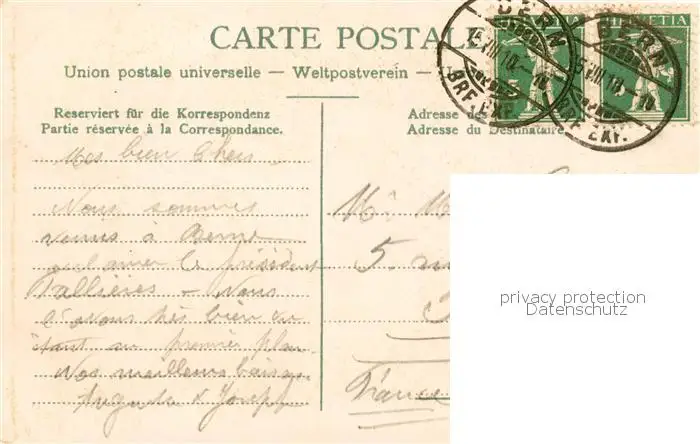 CARTE POSTALE
Union postale universelle — Weltpostverein —
HELVETIA
BERN
BRF. EXP.
HELVETIA
BERN
BRF. EXP.
Reserviert für die Korrespondenz
Partie réservée à la Correspondance.
Adresse des
Adresse du Destinataire.
Mes bien chers
Nous sommes
venus à Berne
acclamer le président
Fallières – Nous
l'avons très bien vu
étant au premier plan
Nos meilleurs baisers
Auguste & Joseph
Mr M
5. rue
France
privacy protection
Datenschutz